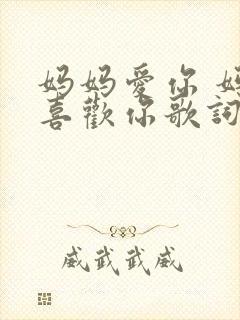 妈妈爱你 妈
喜歡你歌詞
威武武威